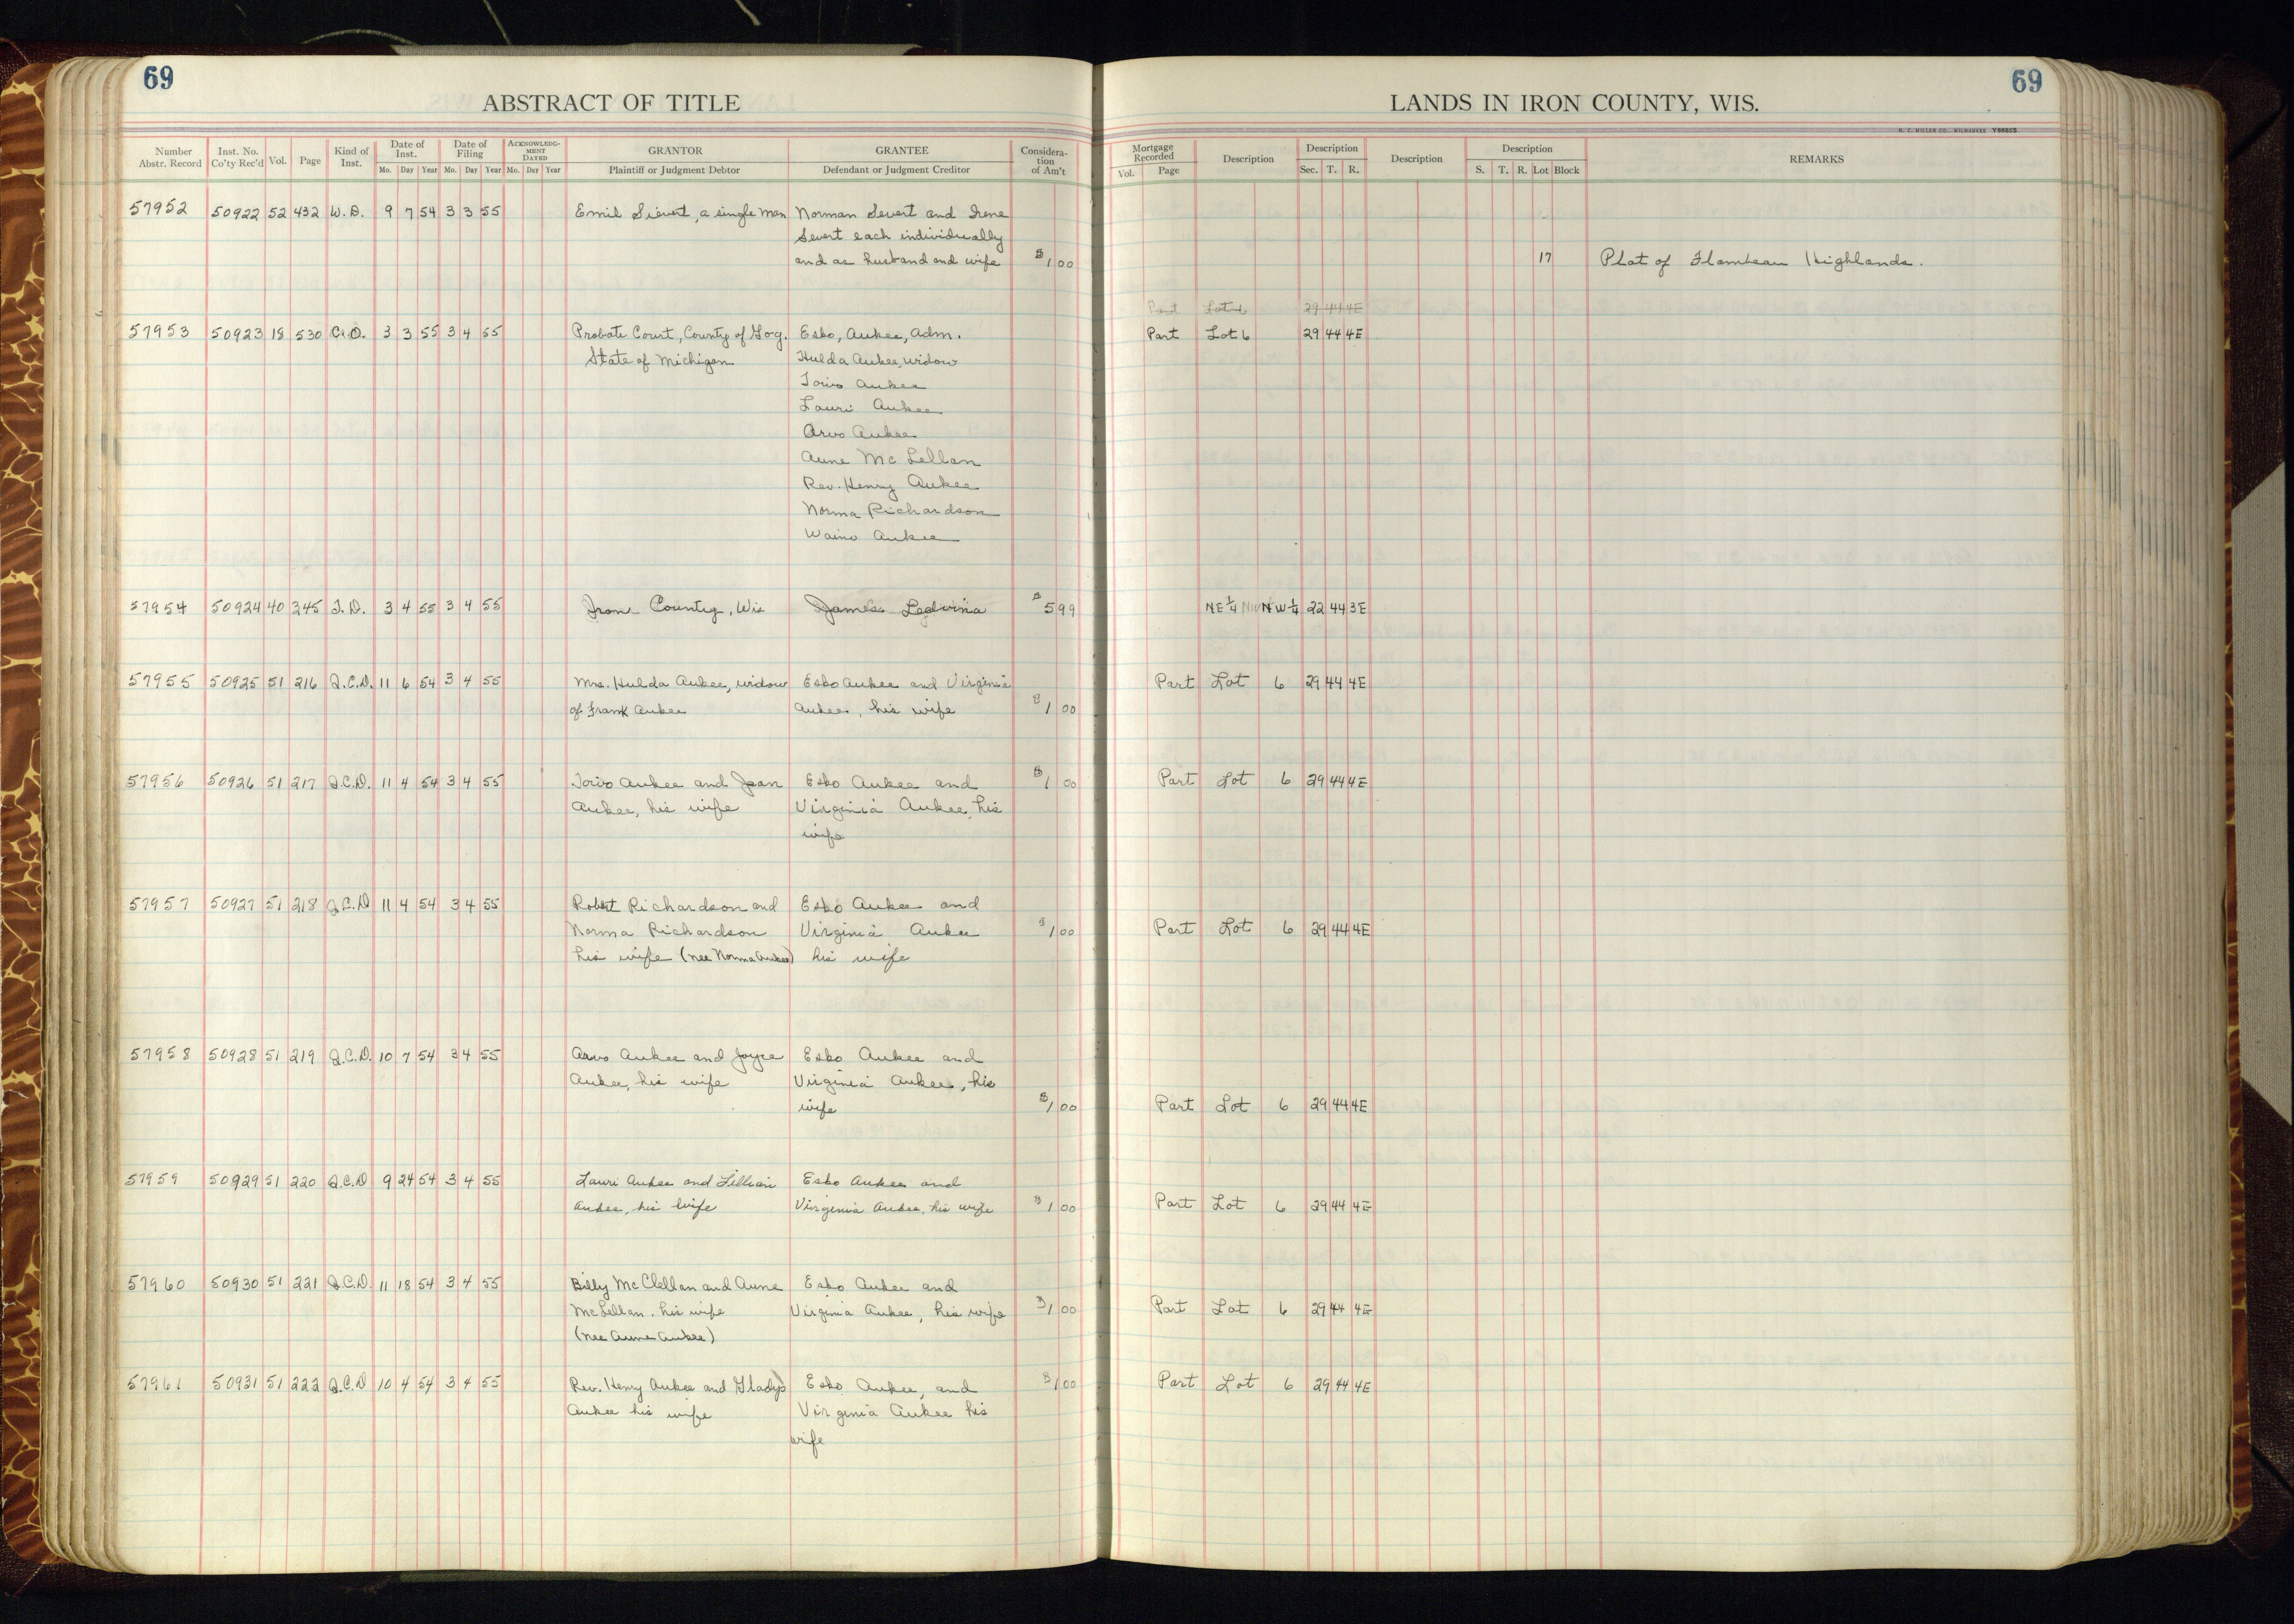 69
69
ABSTRACT OF TITLE
LANDS IN IRON COUNTY, WIS.
H. C. MILLER CO., MILWAUKEE Y66855
Number Abstr. Record Inst. No. Co'ty Rec'd Vol. Page Kind of Inst. Date of Inst. Mo. Day Year Date of Filing Mo. Day Year ACKNOWLEDGMENT DATED Mo. Day Year GRANTOR Plaintiff or Judgment Debtor GRANTEE Defendant or Judgment Creditor Consideration of Am't Mortgage Recorded Vol. Page Description Description Sec. T. R. Description Description S. T. R. Lot Block REMARKS
57952 50922 52 432 W.D. 9 7 54 3 3 55 Emil Sievert, a single man Norman Severt and Irene
Severt each individually
and as husband and wife $1 00 17 Plat of Flambeau Highlands.
Part Lot 29 44 4E
57953 50923 18 530 3 3 55 3 4 55 Probate Court, County of Gog. Esko, Aukee, Adm. Part Lot 6 29 44 4E
State of Michigan Hulda Aukee, widow
Toivo Aukee
Lauri Aukee
Arvo Aukee
Aune McLellan
Rev. Henry Aukee
Norma Richardson
Waino Aukee
57954 50924 40 345 T.D. 3 4 55 3 4 55 Iron County, Wis James Ledvina $5 99 NE 1/4 NW 1/4 22 44 3E
57955 50925 51 216 Q.C.D. 11 6 54 3 4 55 Mrs. Hulda Aukee, widow Esko Aukee and Virginia Part Lot 6 29 44 4E
of Frank Aukee Aukee, his wife $1 00
57956 50926 51 217 Q.C.D. 11 4 54 3 4 55 Toivo Aukee and Jean Esko Aukee and $1 00 Part Lot 6 29 44 4E
Aukee, his wife Virginia Aukee, his
wife
57957 50927 51 218 Q.C.D 11 4 54 3 4 55 Robert Richardson and Esko Aukee and
Norma Richardson Virginia Aukee $1 00 Part Lot 6 29 44 4E
his wife (nee Norma Aukee) his wife
57958 50928 51 219 Q.C.D. 10 7 54 3 4 55 Arvo Aukee and Joyce Esko Aukee and
Aukee, his wife Virginia Aukee, his
wife $1 00 Part Lot 6 29 44 4E
57959 50929 51 220 Q.C.D 9 24 54 3 4 55 Lauri Aukee and Lillian Esko Aukee and
Aukee, his wife Virginia Aukee, his wife $1 00 Part Lot 6 29 44 4E
57960 50930 51 221 Q.C.D. 11 18 54 3 4 55 Billy McClellan and Aune Esko Aukee and
McLellan. his wife Virginia Aukee, his wife $1 00 Part Lot 6 29 44 4E
(nee Aune Aukee)
57961 50931 51 222 Q.C.D 10 4 54 3 4 55 Rev. Henry Aukee and Gladys Esko Aukee, and $1 00 Part Lot 6 29 44 4E
Aukee his wife Virginia Aukee his
wife